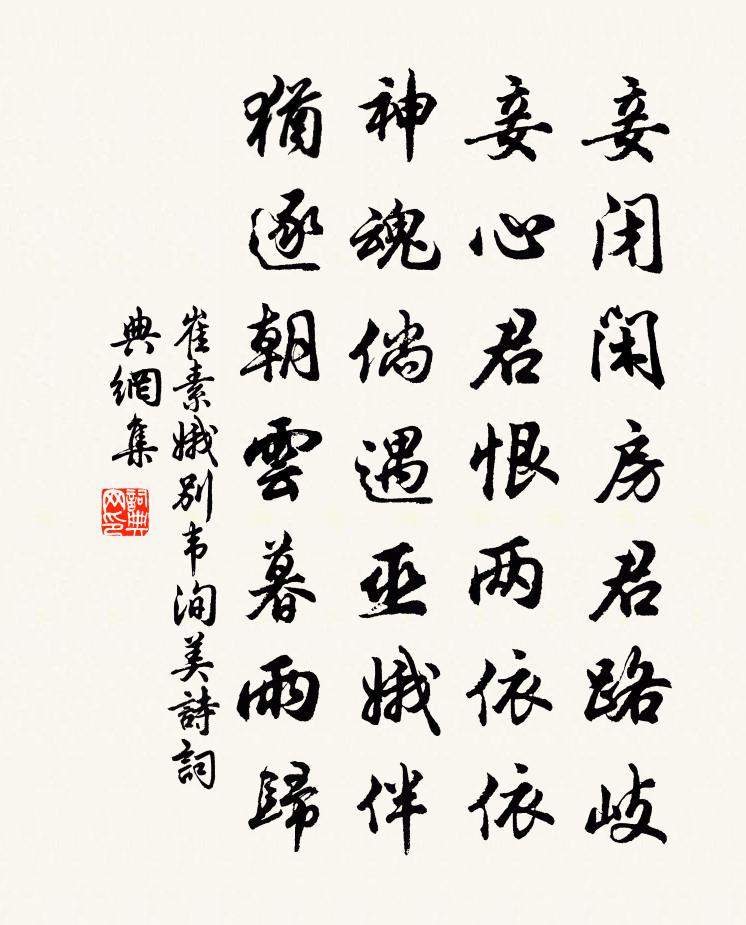 妾闭闲房君路岐
妾心君恨两依依
神魂倘遇巫娥伴
猶逐朝雲暮雨歸
崔素娥别韦洵美詩詞
典網集
詞典
网印